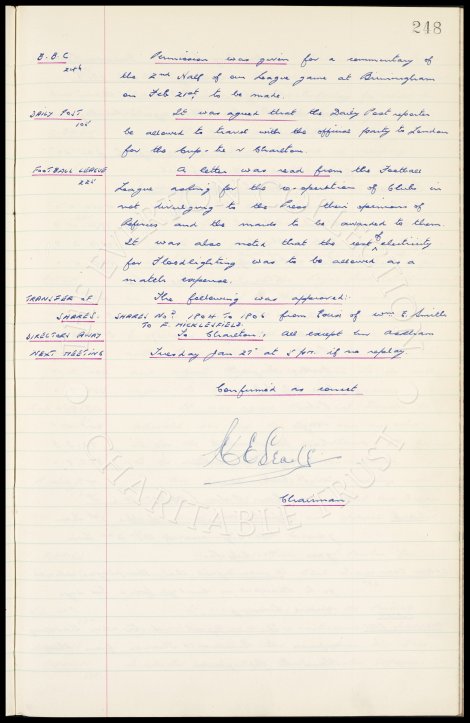 248
B.B.C. Permission was given for a commentary of
the 2nd Half of our League game at Birmingham
on Feb 21st, to be made.
DAILY POST It was agreed that the Daily Post reporter
be allowed to travel with the official party to London
for the Cup-tie v Charlton.
FOOTBALL LEAGUE A letter was read from the Football
League asking for the co-operation of Clubs in
not divulging to the Press their opinions of
Referees and the marks to be awarded to them.
It was also noted that the cost of electricity
for Floodlighting was to be allowed as a
match expense.
TRANSFER OF The following was approved:-
SHARES. SHARES Nos. 1904 TO 1906 from Exors of Wm E. Smith
TO F. MICKLESFIELD.
DIRECTORS AWAY To Charlton: All except Mr
NEXT MEETING Tuesday Jan 27 at 5 pm. if no replay
Confirmed as correct
Chairman
EVERTON COLLECTION
CHARITABLE TRUST